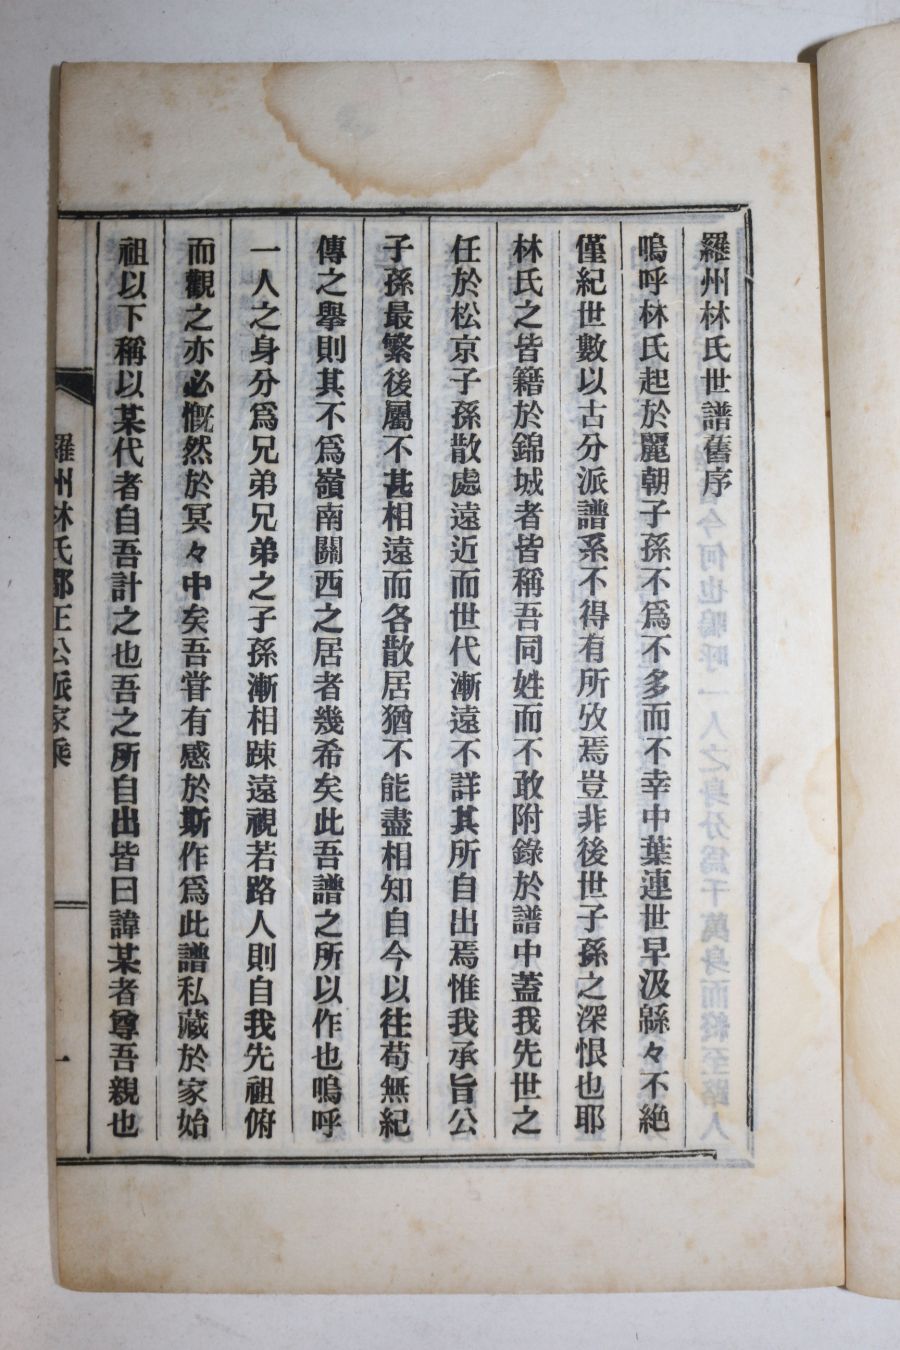 羅州林氏世譜舊序
嗚呼林氏起於麗朝子孫不爲不多而不幸中葉連世早汲緜々不絶
僅紀世數以古分派譜系不得有所攷焉豈非後世子孫之深恨也耶
林氏之皆籍於錦城者皆稱吾同姓而不敢附錄於譜中蓋我先世之
任於松京子孫散處遠近而世代漸遠不詳其所自出焉惟我承旨公
子孫最繁後屬不甚相遠而各散居猶不能盡相知自今以往苟無紀
傳之舉則其不爲嶺南關西之居者幾希矣此吾譜之所以作也嗚呼
一人之身分爲兄弟兄弟之子孫漸相踈遠視若路人則自我先祖俯
而觀之亦必慨然於冥々中矣吾甞有感於斯作爲此譜私藏於家始
祖以下稱以某代者自吾計之也吾之所自出皆曰諱某者尊吾親也
羅州林氏都正公派家乘
一